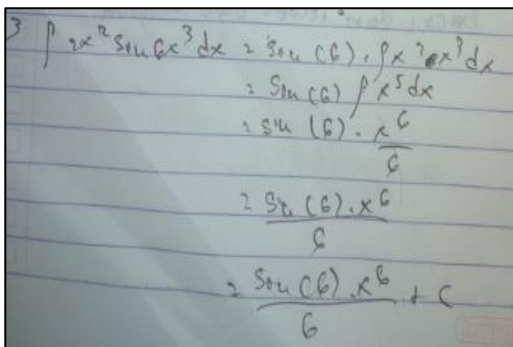 3 ∫ 2x² sin 6x³ dx = sin (6) . ∫ x² x³ dx
= sin (6) ∫ x⁵ dx
= sin (6) . x⁶/6
= sin (6) . x⁶/6
= sin (6) . x⁶/6 + C